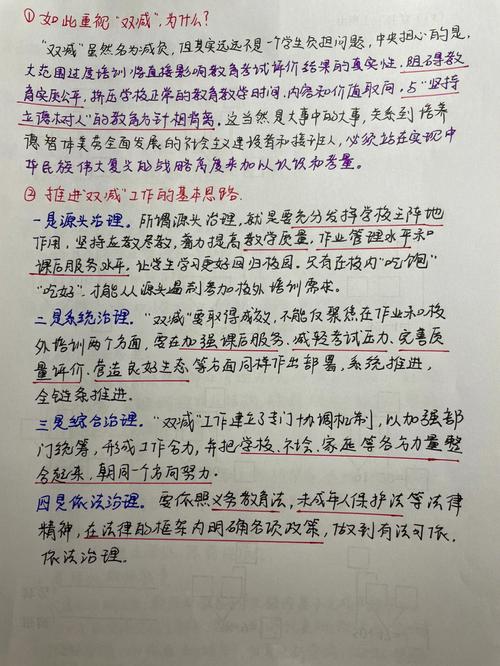 ① 如此重视"双减",为什么?
"双减"虽然名为减负,但其实远远不是一个学生负担问题,中央担心的是,
大范围过度培训将直接影响教育考试评价结果的真实性,明碍教
育实质公平,挤压学校正常的教育教学时间、内容和价值取向,与"坚持
立德树人"的教育方针相背离。这当然是大事中的大事,关系到培养
德智体美全面发展的社会主义建设者和接班人,必须站在实现中
华民族伟大复兴的战略高度来加以认识和考量。
② 推进"双减"工作的基本思路.
一是源头治理。所谓源头治理,就是要充分发挥学校主阵地
作用,坚持应教尽教,着力提高教学质量,作业管理水平和
课后服务水平,让学生学习更好回归校园。只有在校内"吃饱"
"吃好",才能从源头遏制参加校外培训需求。
二是系统治理。"双减"要取得成效,不能仅聚焦在作业和校
外培训两个方面,要在加强课后服务、减轻考试压力、完善质
量评价、营造良好生态等方面同样作出部署,系统推进,
全链条推进。
三是综合治理。"双减"工作建立了专门协调机制,以加强部
门统筹,形成工作合力,并把学校、社会、家庭等各方力量整
合起来,朝同一个方向努力。
四是依法治理。要依照义务教育法,未成年人保护法等法律
精神,在法律的框架内明确各项政策,做到有法可依,
依法治理.